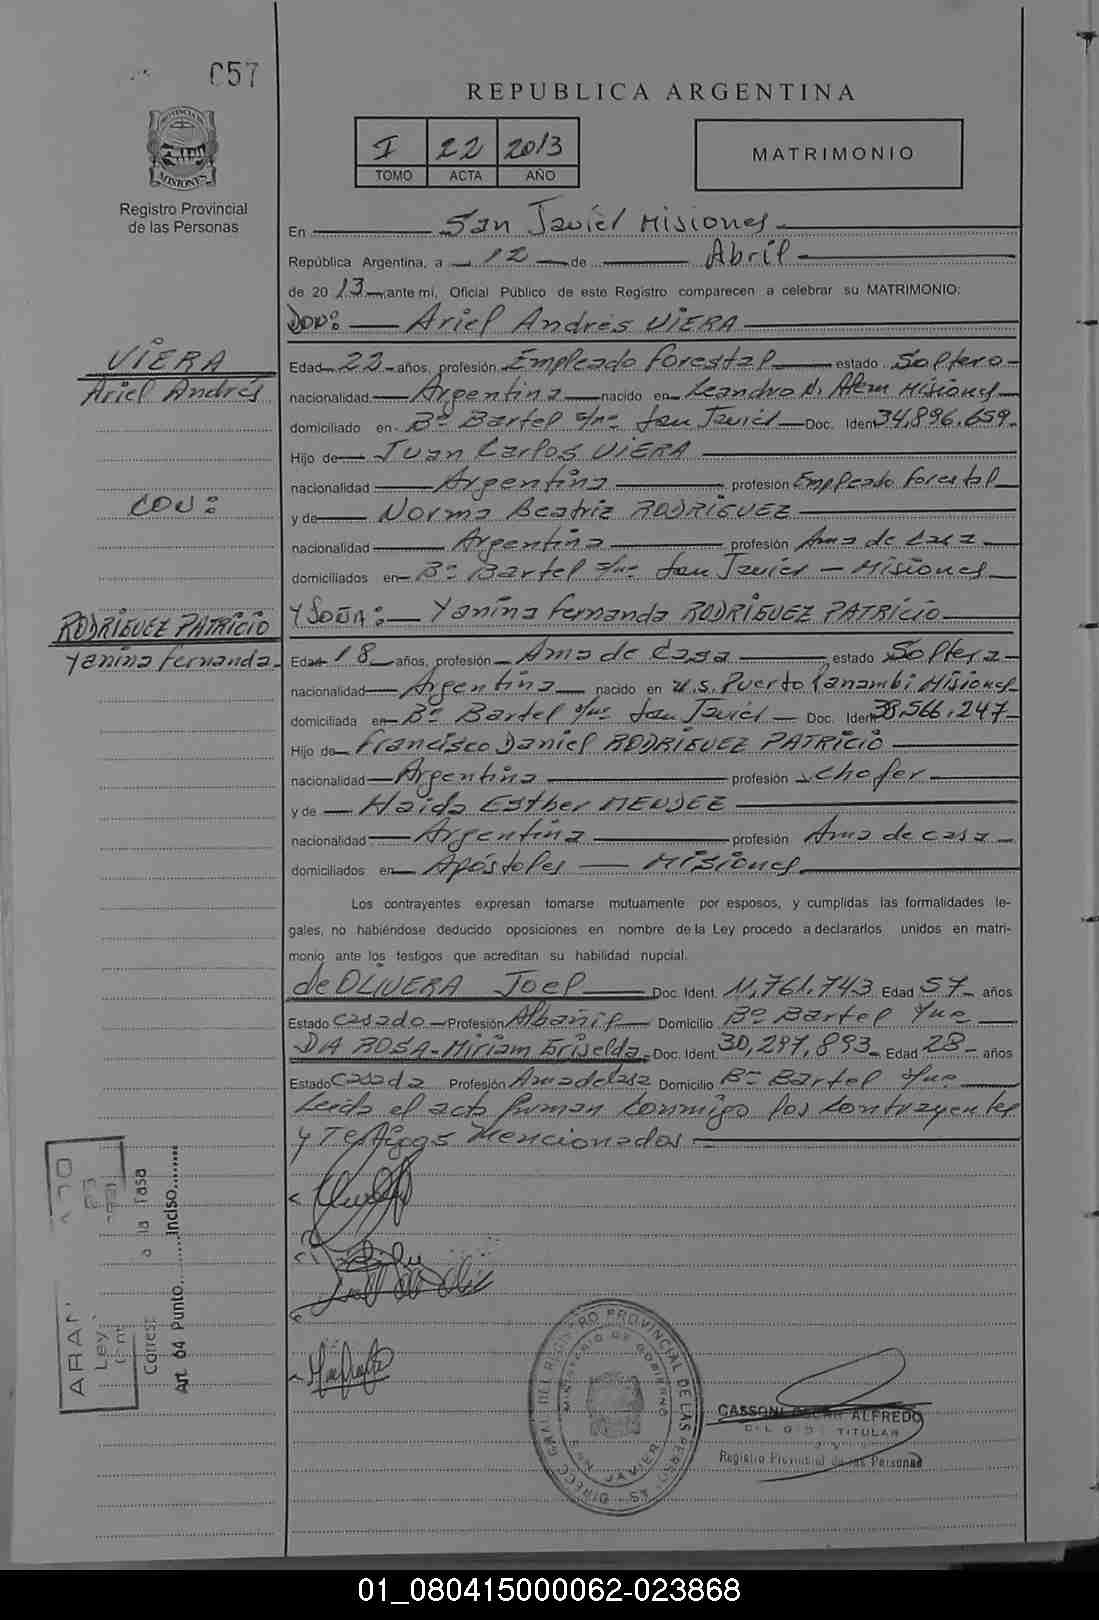 057
REPUBLICA ARGENTINA
I 22 2013
TOMO ACTA AÑO
MATRIMONIO
PROVINCIA DE
MISIONES
Registro Provincial
de las Personas
En San Javier Misiones
República Argentina, a 12 de Abril
de 2013 ante mí, Oficial Público de este Registro comparecen a celebrar su MATRIMONIO:
DON: Ariel Andrés VIERA
VIERA
Ariel Andrés
Edad 22 años, profesión Empleado forestal estado Soltero
nacionalidad Argentina nacido en Leandro N. Alem Misiones
domiciliado en Bº Bartel s/nº San Javier Doc. Iden 34.896.659
Hijo de Juan Carlos VIERA
nacionalidad Argentina profesión Empleado forestal
CON:
y de Norma Beatriz RODRIGUEZ
nacionalidad Argentina profesión Ama de Casa
domiciliados en Bº Bartel s/nº San Javier - Misiones
Y DOÑA: Yanina Fernanda RODRIGUEZ PATRICIO
RODRIGUEZ PATRICIO
Yanina Fernanda
Edad 18 años, profesión Ama de Casa estado Soltera
nacionalidad Argentina nacido en Puerto Panambi Misiones
domiciliada en Bº Bartel s/nº San Javier Doc. Iden 38.566.247
Hijo de Francisco Daniel RODRIGUEZ PATRICIO
nacionalidad Argentina profesión chofer
y de Haida Esther MENDEZ
nacionalidad Argentina profesión Ama de casa
domiciliados en Apóstoles Misiones
Los contrayentes expresan tomarse mutuamente por esposos, y cumplidas las formalidades le-
gales, no habiéndose deducido oposiciones en nombre de la Ley procedo a declararlos unidos en matri-
monio ante los testigos que acreditan su habilidad nupcial.
de OLIVERA Joel Doc. Ident. 11.761.743 Edad 57 años
Estado casado Profesión Albañil Domicilio Bº Bartel s/nº
DA ROSA Miriam Griselda Doc. Ident. 30,297,893 Edad 28 años
Estado casada Profesión Ama de casa Domicilio Bº Bartel s/nº
Leida el acta firman conmigo los contrayentes
y Testigos Mencionados
ARAN
Ley
Corres. a la Tasa
Art. 64 Punto Inciso
DIRECC. GRAL. DEL REGISTRO PROVINCIAL DE LAS PERSONAS
MINISTERIO DE GOBIERNO
SAN JAVIER
CASSONI OSCAR ALFREDO
TITULAR
Registro Provincial de las Personas
01_080415000062-023868